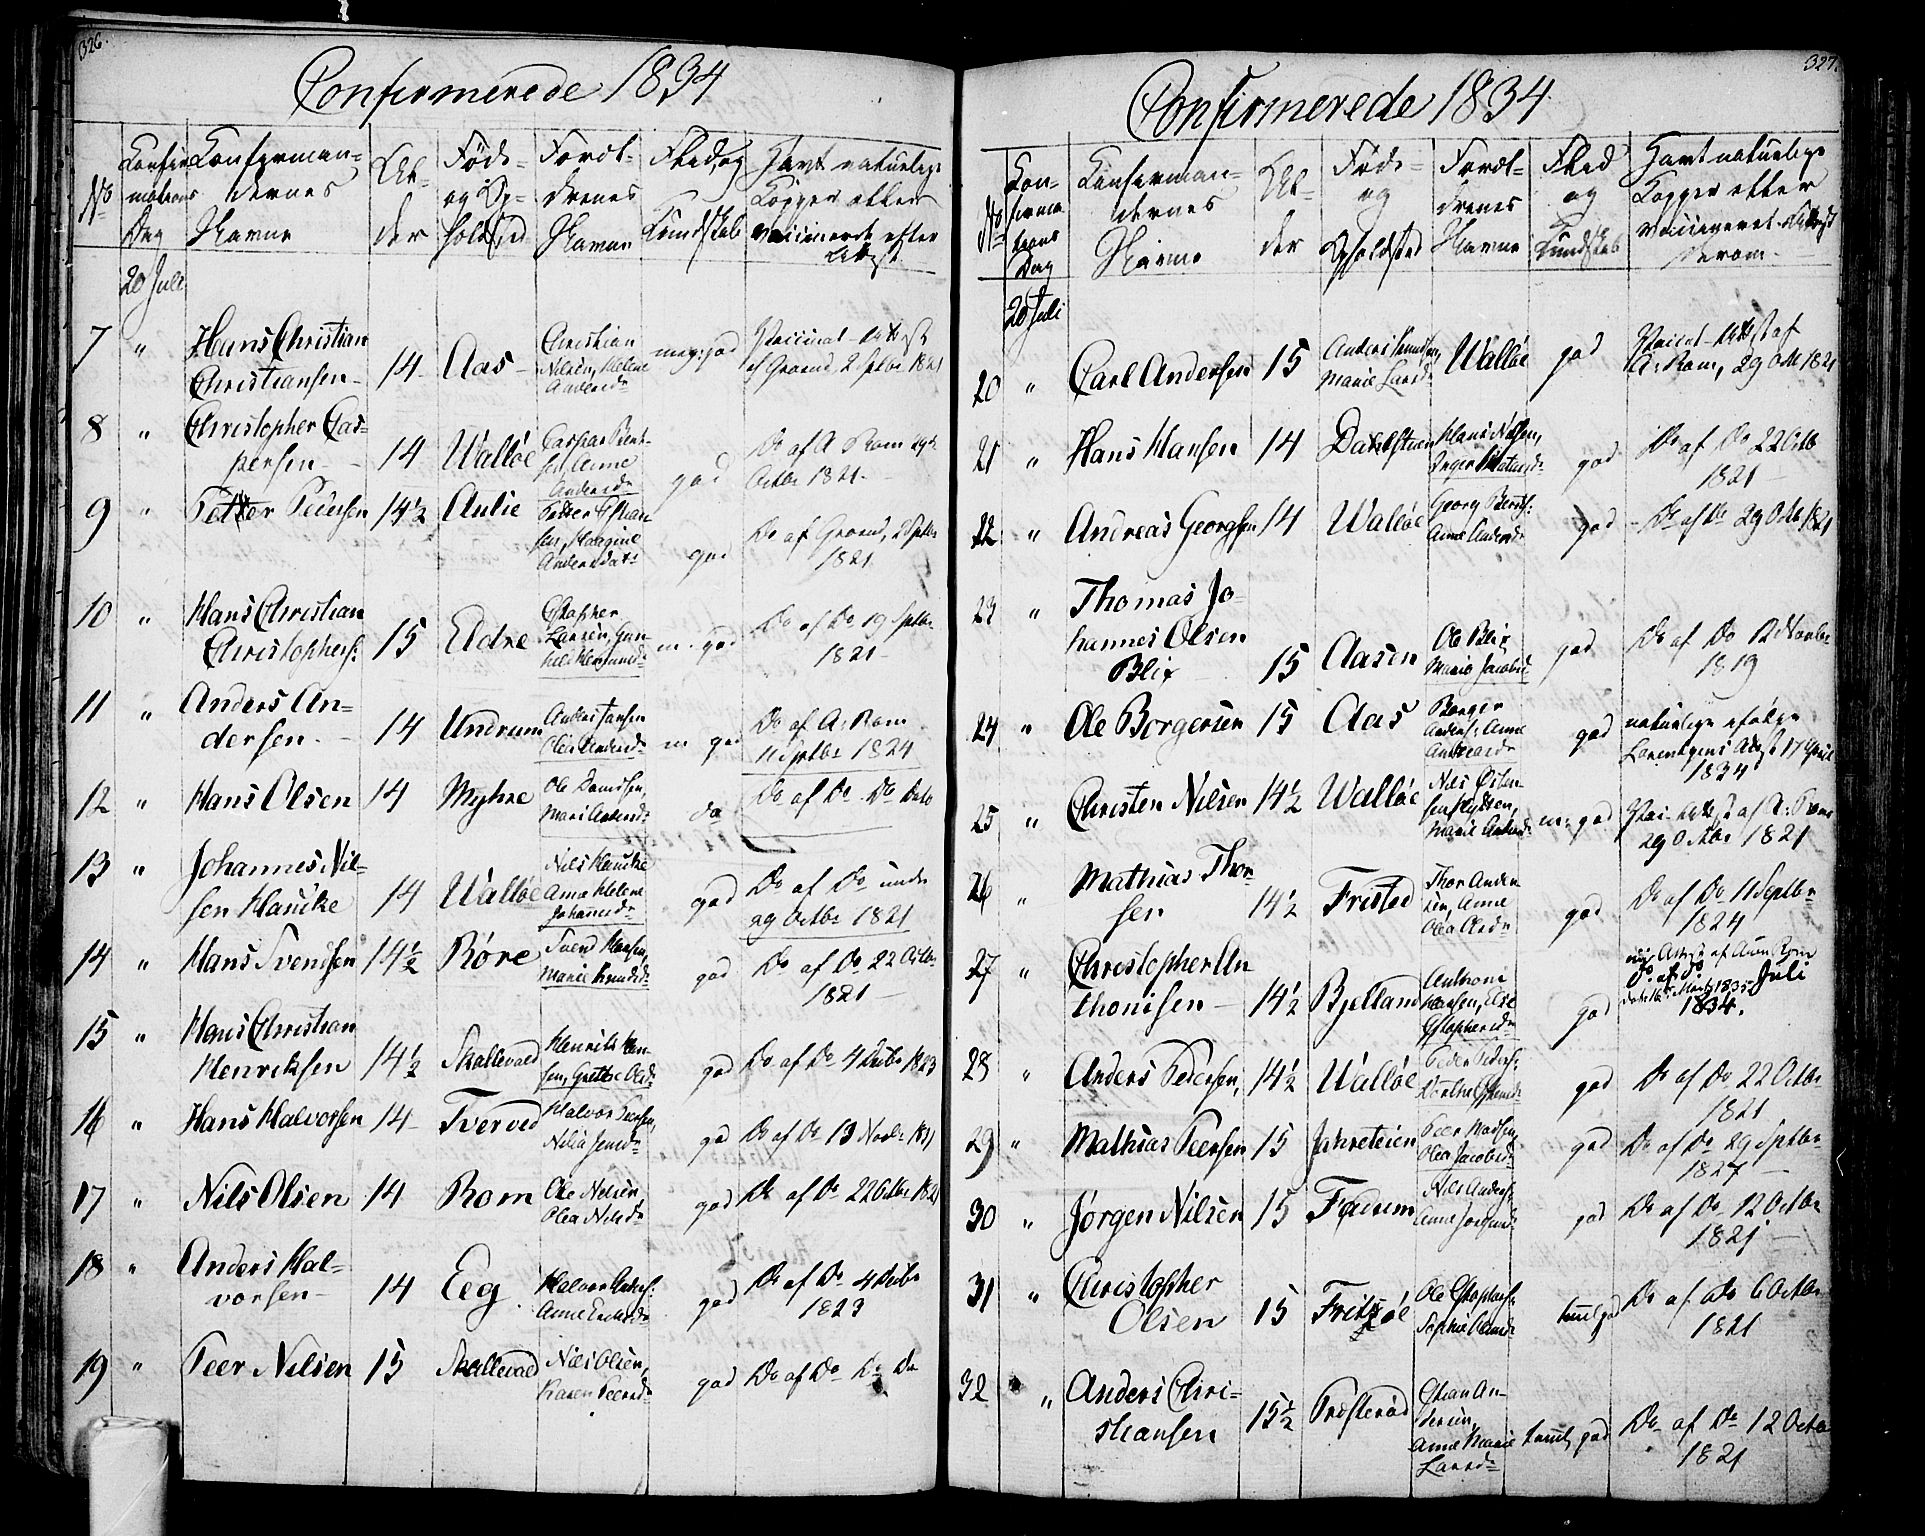 326.
Confirmerede 1834
No
Confir-
mations
Dag
Confirman-
dernes
Navne
Al-
der
Føde-
og Op-
holdsted
Foræl-
drenes
Navne
Flid og
Kundskab
Havt naturlige
Kopper eller
vaccinerede efter
Attest
20 Juli
7 " Hans Christian
Christiansen 14 Aas
Christian
Nilsen, Helene
Andersd.
meg: god
Vaccinat. Attest
af Grorud, 2 Septbr 1821
8 " Christopher Cas-
persen 14 Walløe
Caspar Bent-
sen, Anne
Andersd.
god
Do af A. Rom 29de
Octbr 1821.
9 " Petter Pedersen 14½ Aulie
Andersdatr
god
Do af Grorud, 2 Septbr
1821
10 " Hans Christian
Christophers: 15 Eldre
Chstopher
Larsen, Gun-
m. god
Do af Do 19 Septbr
1821
11 " Anders An-
dersen 14 Undrum
Anders Jansen
Olea Andersd.
m god
Do af A: Rom
11 Septbr 1824
12 " Hans Olsen 14 Myhre
Ole
Mari Andersd.
do
Do af Do Do Dato
13 " Johannes Nil-
sen Haucke 14 Walløe
Nils Haucke
Anne Helene
Johannesd.
god
Do af Do under
29 Octbr 1821
14 " Hans Svendsen 14½ Røre
Svend Hansen,
Marie Knudsd.
god
Do af Do 22 Octbr
1821
15 " Hans Christian
Henriksen 14½ Skallevald
Henrik Han-
sen, Grethe Olsd.
god
Do af Do 4 Decbr 1823
16 " Hans Halvorsen 14 Tverved
Halvor
god
Do af Do 13 Novbr 1821
17 " Nils Olsen 14 Rom
Ole Nelsen,
Olea Nilsd.
god
Do af Do 22 Octbr 1821
18 " Anders Hal-
vorsen 14 Eeg
Halvor Anders:
Anne
god
Do af Do 4 Decbr
1823
19 " Peer Nilsen 15 Skallevald
Nils Olsen,
Karen Peersd.
god
Do af Do Do Do
327.
Confirmerede 1834
No
Con-
firma-
tions
Dag
Confirman-
dernes
Navne
Al-
der
Føde-
og
Opholdsted
Foræl-
drenes
Navne
Flid
og
Kundskab
Havt naturlige
Kopper eller
vaccineret Attest
derom.
20 Juli
20 " Carl Andersen 15
Anders Knudsen,
Marie Larsd.
Walløe
god
Vaccinat. Attest af
A: Rom, 29 Oct 1821
21 " Hans Hansen 14 Dahlstuen
Hans Nilsen,
Inger
god
Do af Do 22 Octb
1821
22 " Andreas Georgsen 14 Walløe
Georg Bents:
Anne Andersd.
god
Do af Do 29 Octb 1821
23 " Thomas Jo-
hannes Olsen
Blix 15 Aasen
Ole Blix
Marie Jacobsd.
god
Do af Do 12 Novbr
1819
24 " Ole Borgersen 15 Aas
Borger
Anders: Anne
Andersd.
god
naturlige ifølge
Attest 17 April
1834
25 " Christen Nilsen 14½ Walløe
Nils
Marie
m: god
Vac. Attest af A: Rom
29 Octbr 1821
26 " Mathias Thor-
sen 14½ Fristad
Thor Ander-
sen, Anne
Olea Olsd.
god
Do af Do 11 Septbr
1824
27 " Christopher An-
thonisen 14½ Bjelland
Anthoni
Hansen, Else
Chstophersd.
god
Attest af Aum Rom
Do af Do Juli
1834.
28 " Anders Pedersen, 14½ Walløe
Peder Peders:
god
Do af Do 22 Octbr
1821
29 " Mathias Peersen 15 Jahreteien
Peer Madsen,
Olea Jacobsd.
god
Do af Do 29 Septbr
1827
30 " Jørgen Nilsen 15 Fadum
Nils Anders:
Anne
god
Do af Do 12 Octbr
1821
31 " Christopher
Olsen 15 Fritzøe
Ole Chstophers:
Sophie
god
Do af Do 6 Octbr
1821
32 " Anders Chri-
stiansen 15½ Frøsterød
Chstian An-
dersen,
Anne Marie
Larsd.
god
Do af Do 12 Octbr
1821